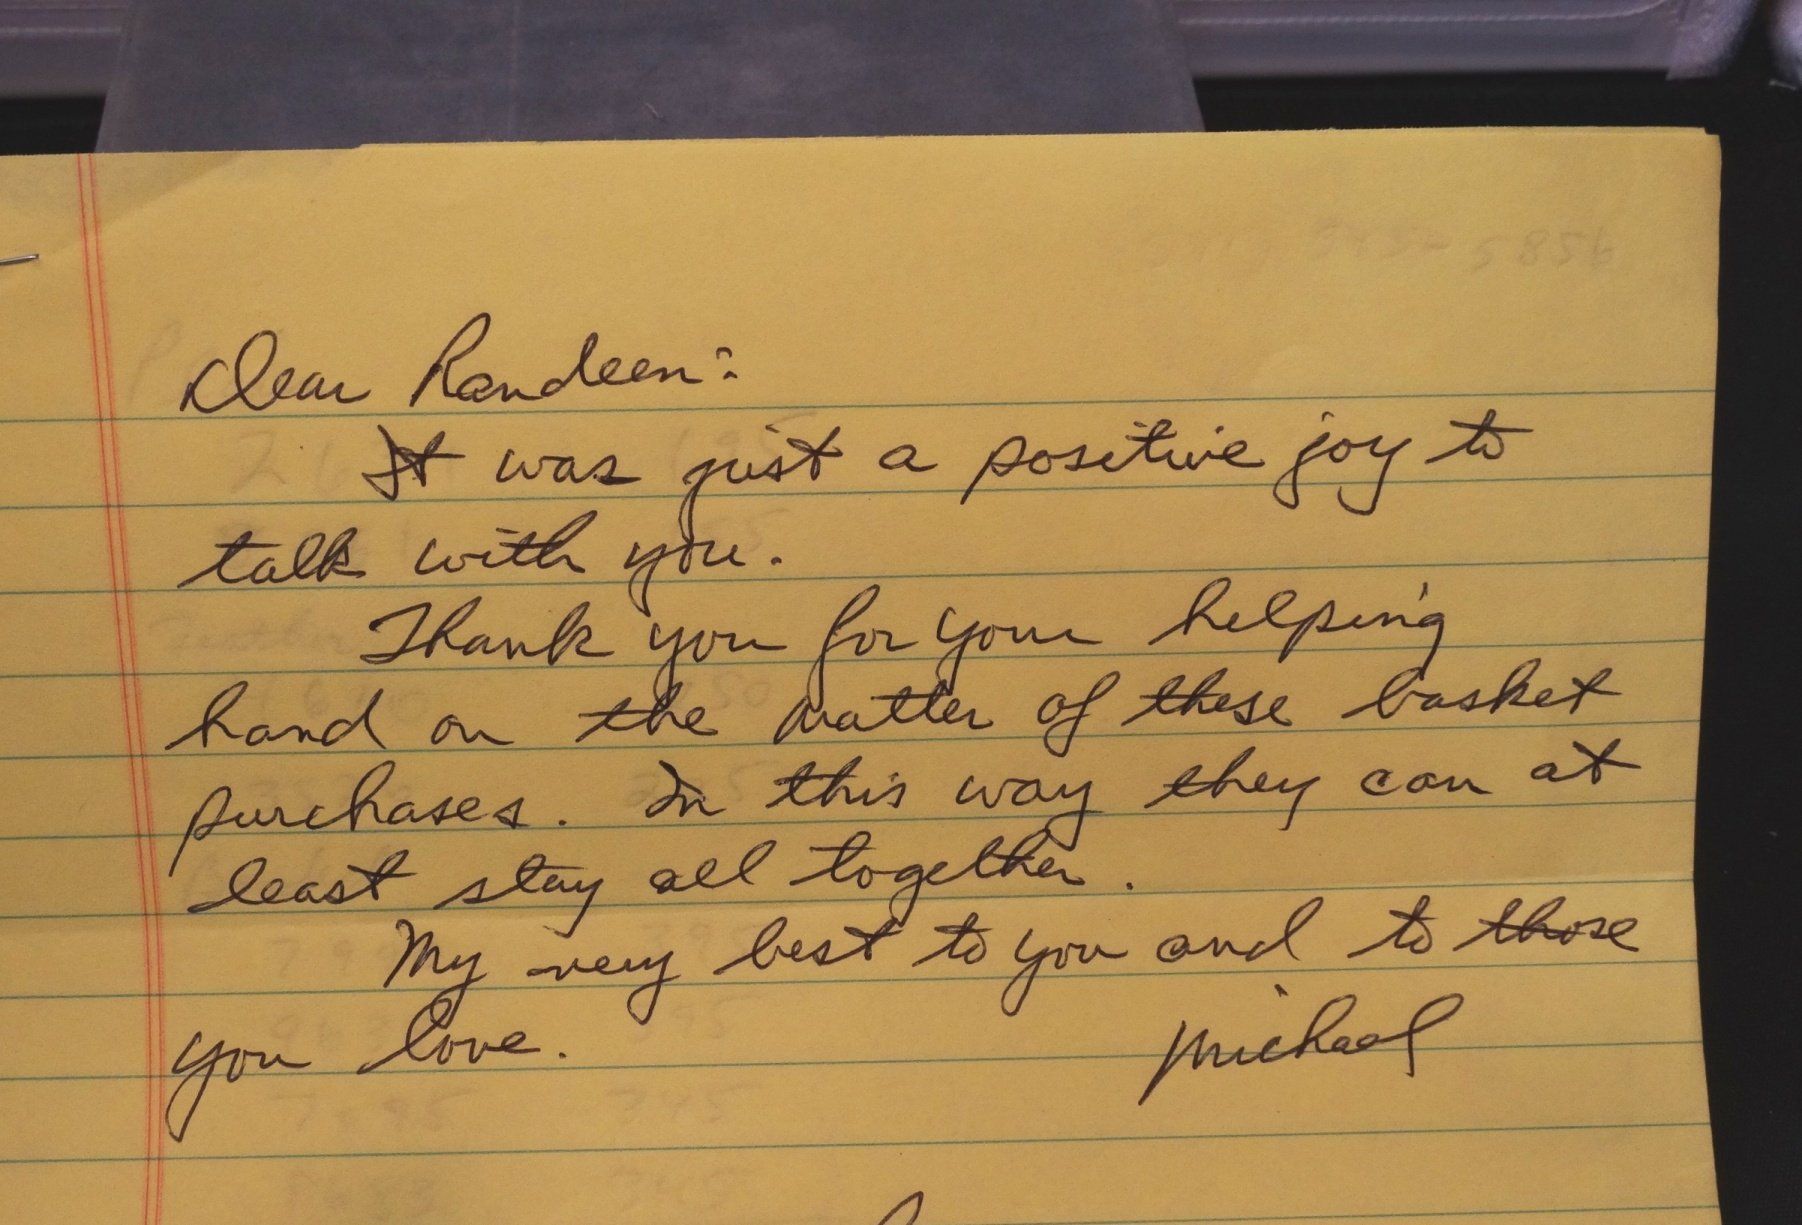 Dear Randeen:
It was just a positive joy to
talk with you.
Thank you for your helping
hand on the matter of these basket
purchases. In this way they can at
least stay all together.
My very best to you and to those
you love.
Michael